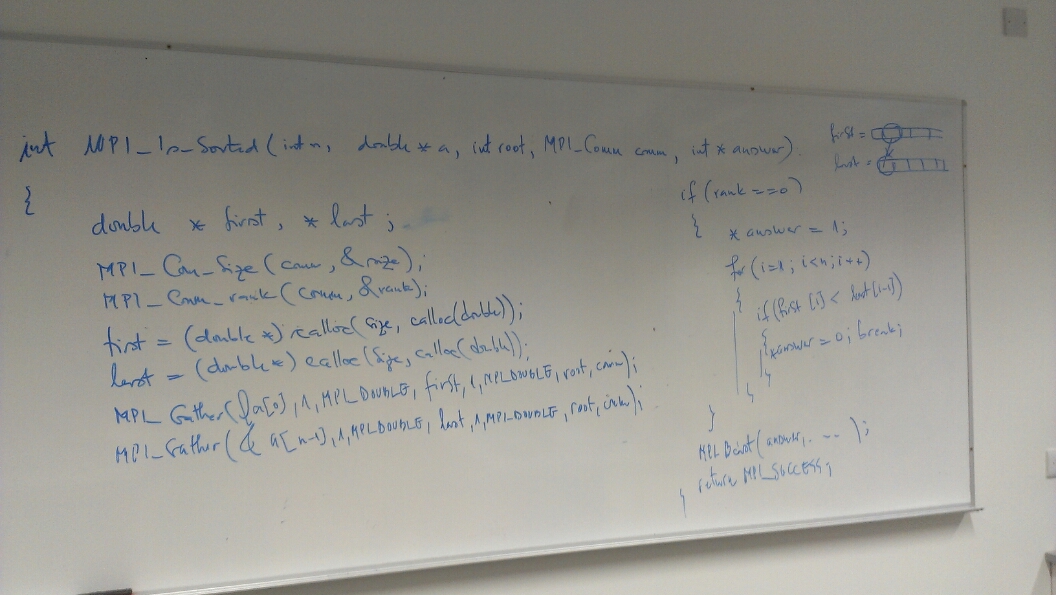 int MPI_Is_Sorted(int n, double * a, int root, MPI_Comm comm, int * answer)
{
double * first, * last ;
MPI_Com_Size(comm, &size);
MPI_Comm_rank(comm, &rank);
first = (double *) calloc(size, calloc(double));
last = (double *) calloc(size, calloc(double));
MPI_Gather(&a[0], 1, MPI_DOUBLE, first, 1, MPI_DOUBLE, root, comm);
MPI_Gather(& a[n-1], 1, MPI_DOUBLE, last, 1, MPI_DOUBLE, root, comm);
first =
last =
if (rank == 0)
{ * answer = 1;
for (i=1; i<n; i++)
{ if (first [i] < last [i-1])
{ *answer = 0; break;
}
}
}
MPI_Bcast(answer, . -- );
return MPI_SUCCESS;
}